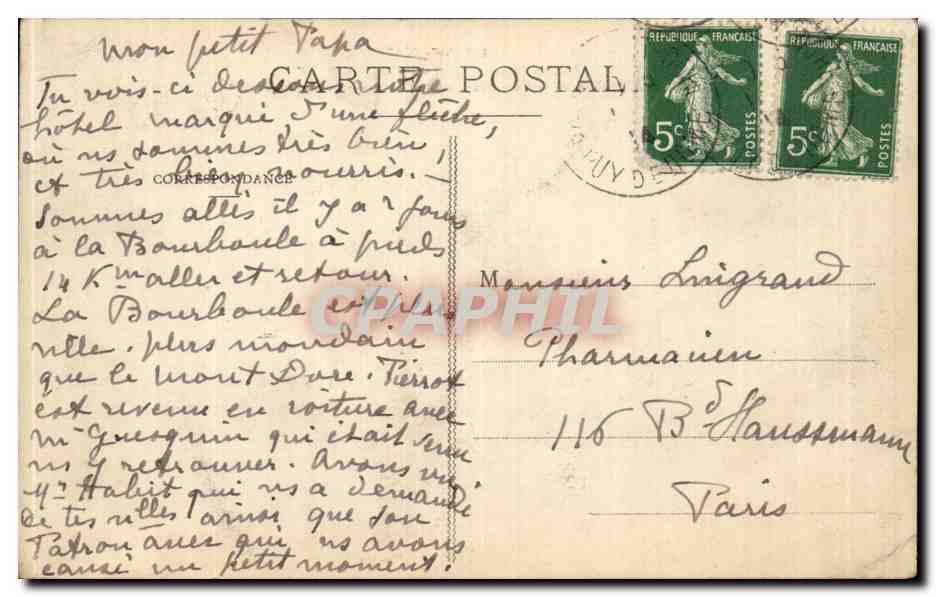 mon petit Papa
CARTE POSTALE
Tu vois-ci dessous notre
hôtel marqué d'une flèche,
où ns sommes très bien,
et très bien nourris. —
CORRESPONDANCE
Sommes allés il y a 2 jours
à la Bourboule à pieds
14 Km aller et retour.
La Bourboule est plus
ville, plus mondain
que le Mont Dore. Pierrot
est revenu en voiture avec
Mr Guesquin qui était venu
ns y retrouver. Avons vu
Mr Habit qui ns a demandé
de tes nlles ainsi que son
Patron avec qui ns avons
causé un petit moment.
REPUBLIQUE FRANÇAISE
5c
POSTES
REPUBLIQUE FRANÇAISE
5c
POSTES
Monsieur Lingrand
Pharmacien
116 Bd Haussmann
Paris
CPAPHIL